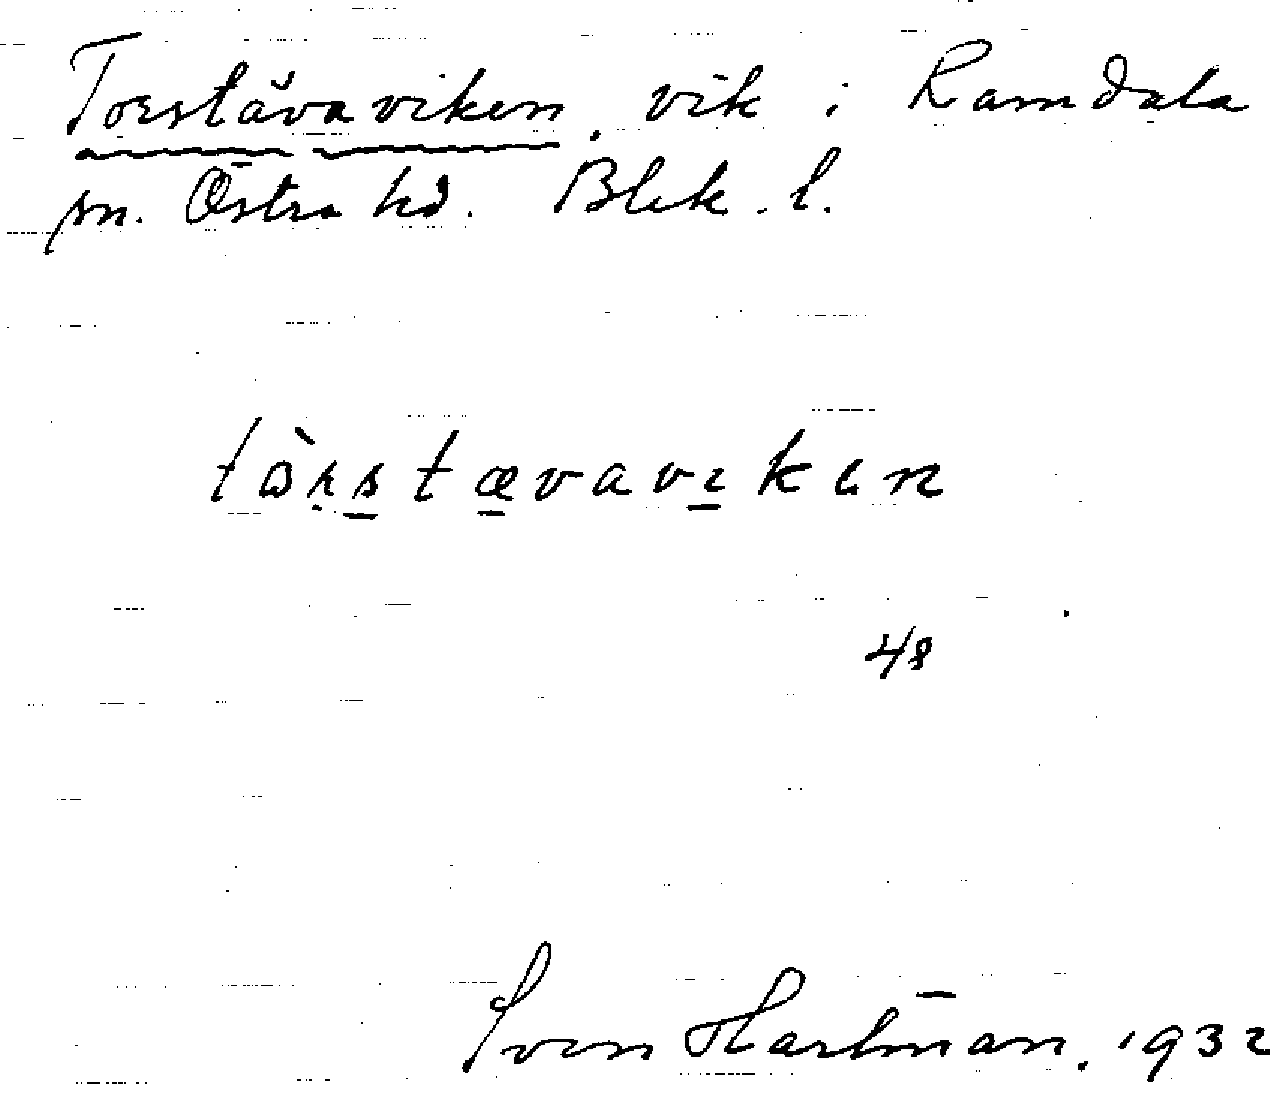 Torstävaviken, vik i Ramdala
sn. Östra hd. Blek. l.
tòrstævavikɩn
48
Sven Hartman. 1932